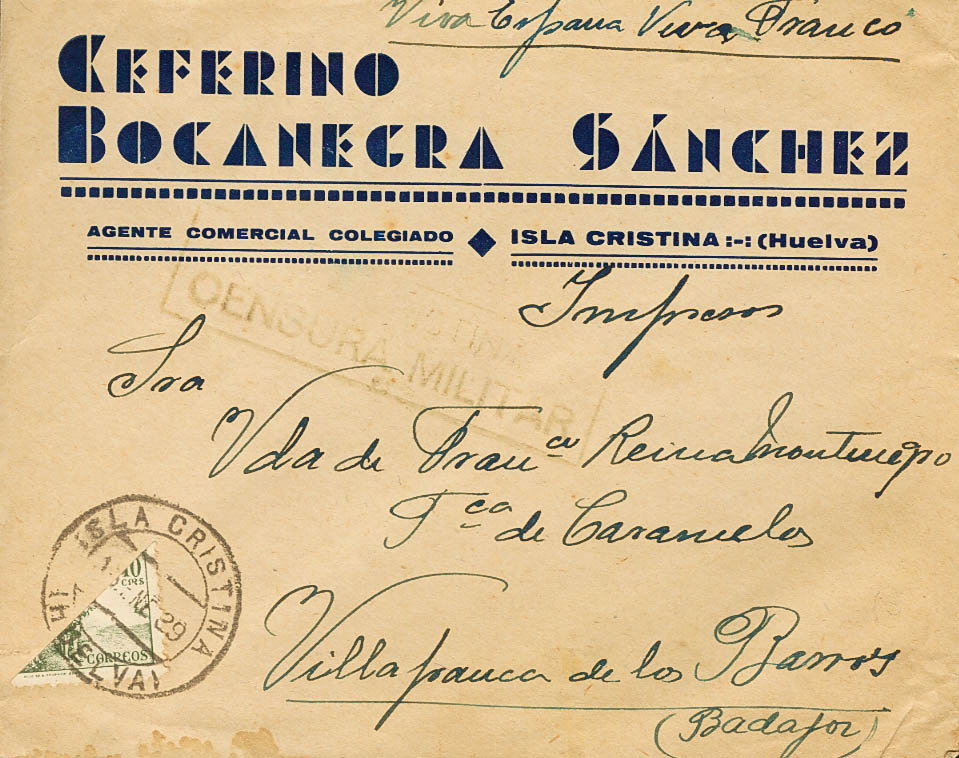 Viva España Viva Franco
CEFERINO
BOCANEGRA SÁNCHEZ
AGENTE COMERCIAL COLEGIADO ◆ ISLA CRISTINA :-: (Huelva)
Impresos
CENSURA MILITAR
Sra
Vda de Franca Reina Montenegro
Fca de Caramelos
Villafranca de los Barros
(Badajoz)
ISLA CRISTINA
HUELVA
10
CTS
CORREOS